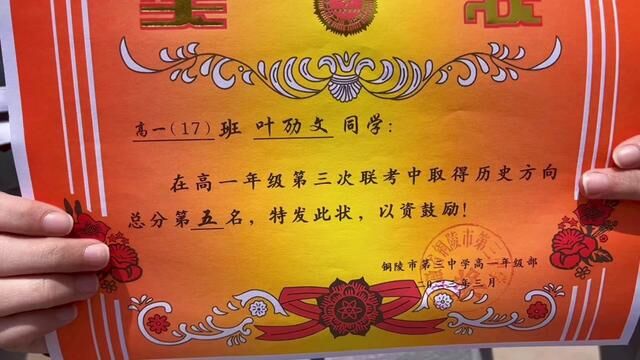 高一(17)班 叶劢文 同学:
在高一年级第三次联考中取得历史方向
总分第五名，特发此状，以资鼓励!
铜陵市第三中学高一年级部
三月